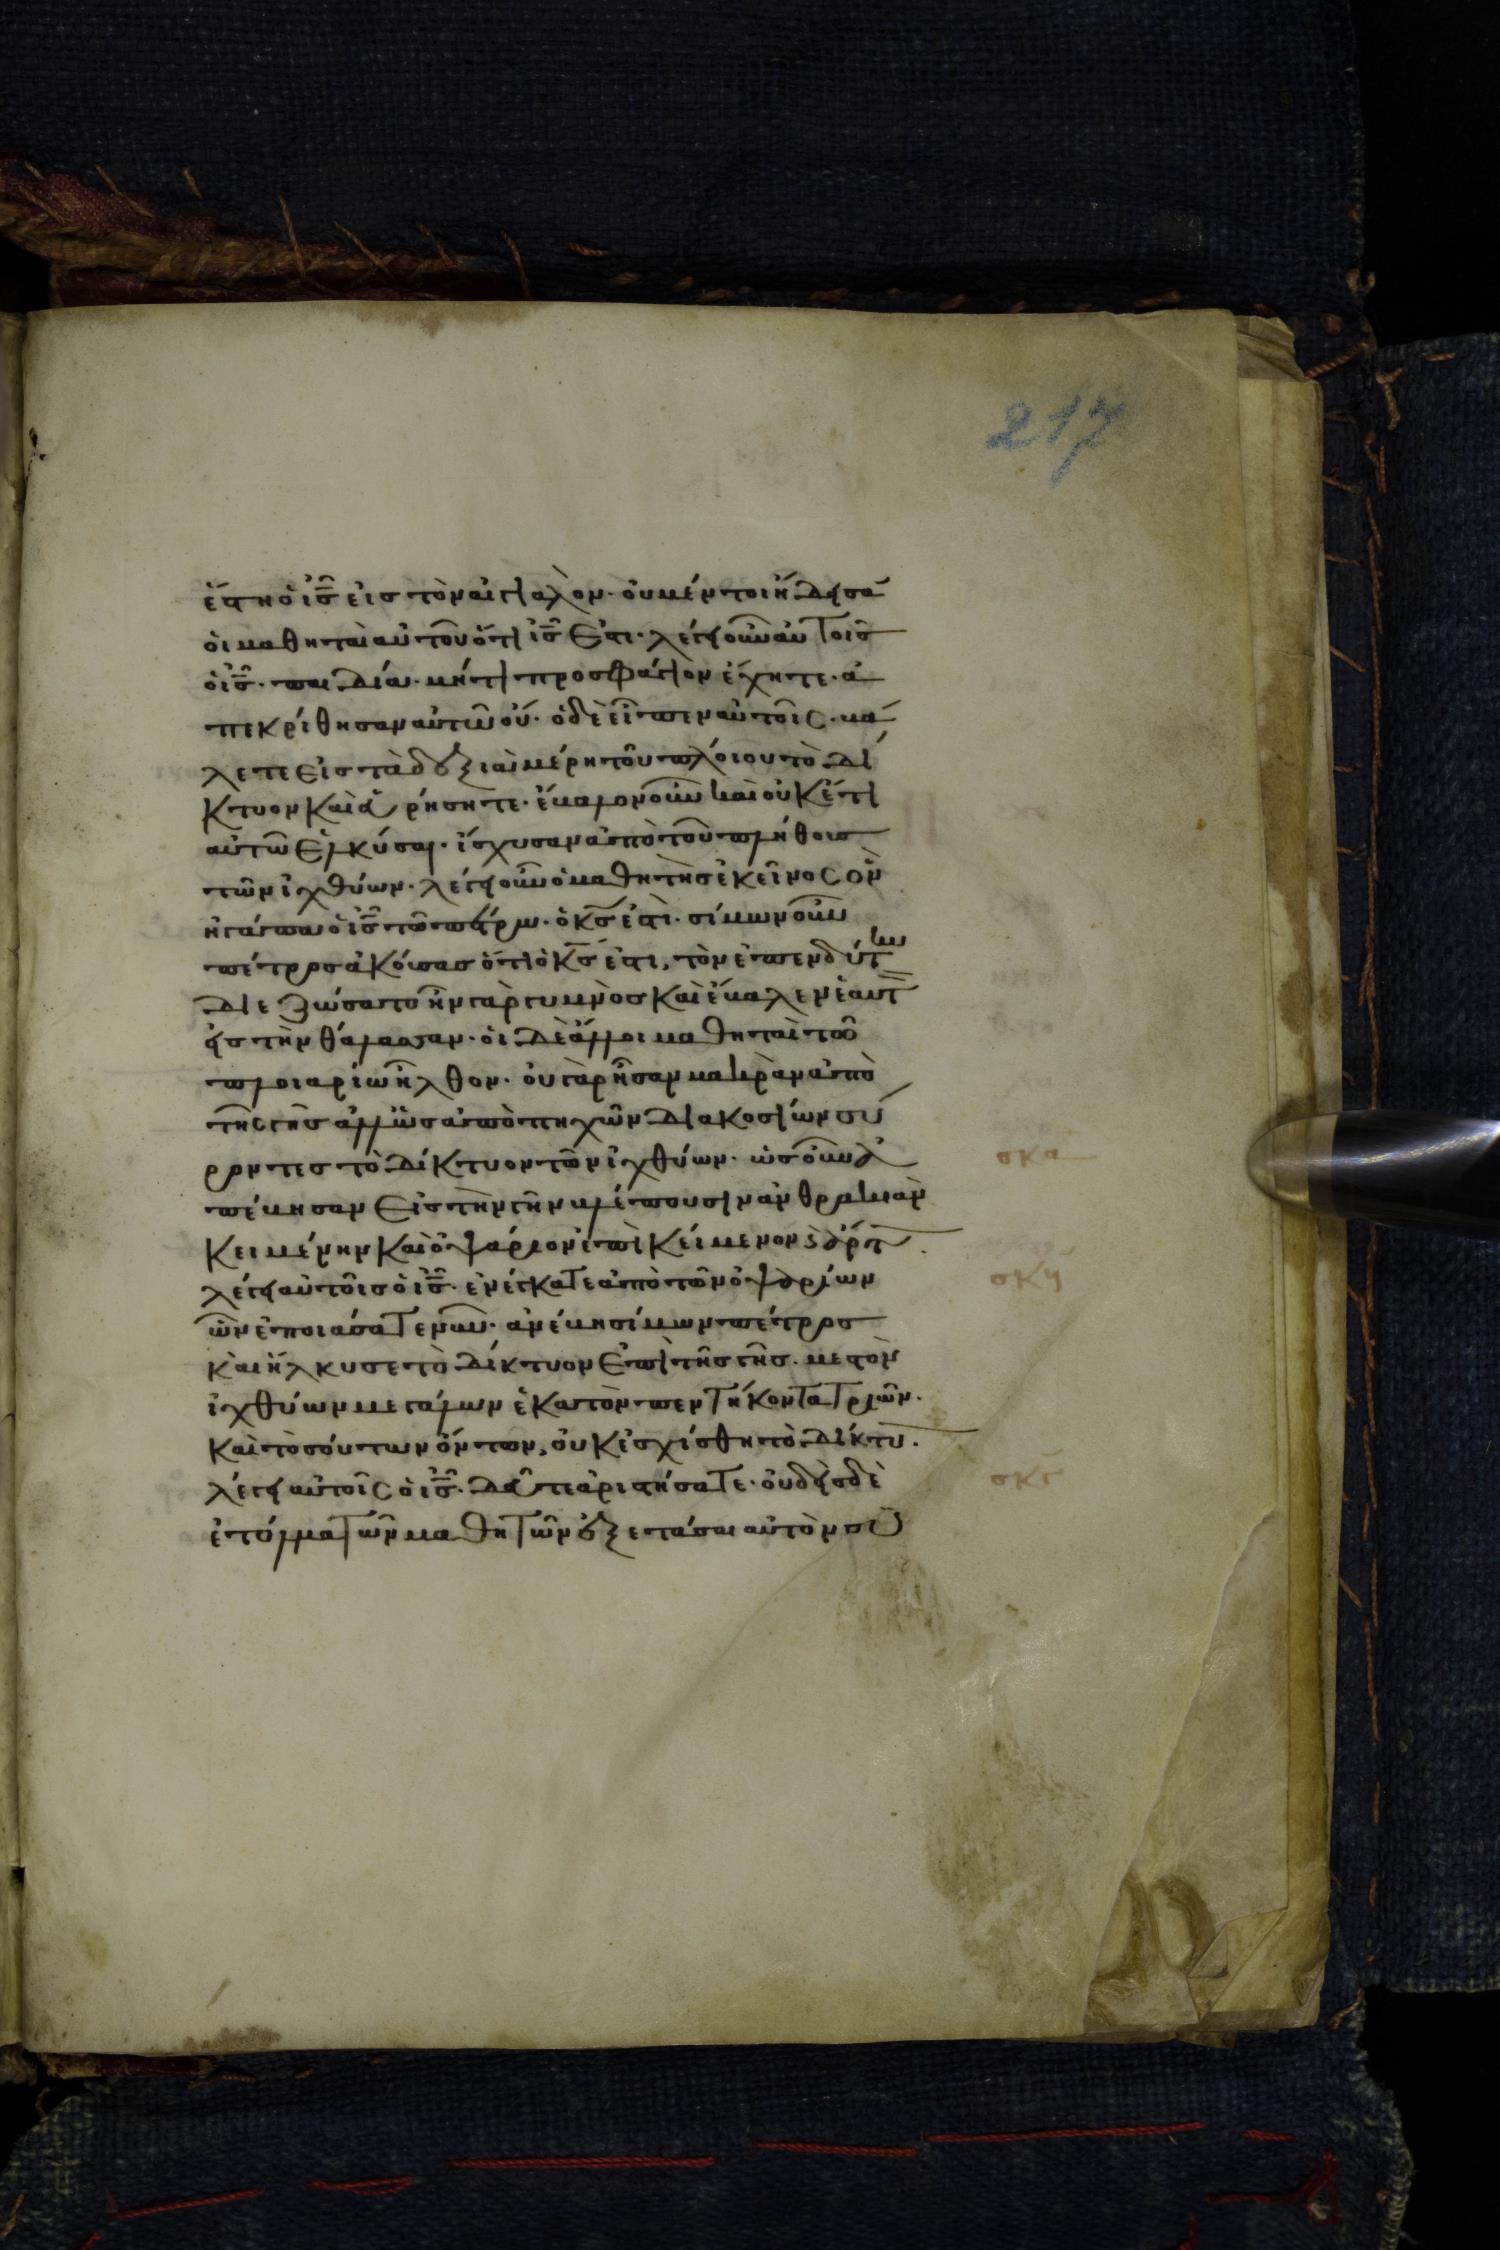 217
ἔστη ὁ ις εἰς τὸν αἰγιαλὸν· οὐ μέντοι ἤδεισα
οἱ μαθηταὶ αὐτοῦ ὅτι ις ἐστι· λέγει οὖν αὐτοις
ὁ ις· παιδία· μήτι προσφάγιον ἔχητε· ἀ
πεκρίθησαν αὐτῶ οὔ· ὁ δὲ εἶπεν αὐτοῖς· βά
λετε εἰς τὰ δεξιὰ μέρη τοῦ πλοίου τὸ δί
κτυον καὶ εὑρήσητε· ἔβαλον οὖν καὶ οὐκέτι
αὐτῶ ἑλκύσαι· ἴσχυσαν ἀπὸ τοῦ πλήθους
τῶν ἰχθύων· λέγει οὖν ὁ μαθητὴς ἐκεῖνος ὃν
ἠγάπα ὁ ις τῶ πέτρω· ὁ κς ἐστὶ· σίμων οὖν
πέτρος ἀκούσας ὅτι ὁ κς ἐστι, τὸν ἐπενδύτην
διεζώσατο ἦν γὰρ γυμνὸς καὶ ἔβαλεν ἑαυτ
εἰς τὴν θάλασσαν· οἱ δὲ ἄλλοι μαθηταὶ τοῦ
πλοιαρίω ἦλθον· οὐ γὰρ ἦσαν μακρὰν ἀπὸ
τῆς γῆς ἀλλ' ὡς ἀπὸ πηχῶν διακοσίων σύ
ροντες τὸ δίκτυον τῶν ἰχθύων· ὡς οὖν ἀ
σκα
πέβησαν εἰς τὴν γῆν βλέπουσιν ἀνθρακιὰν
κειμένην καὶ ὀψάριον ἐπικείμενον καὶ ἄρτ
λέγει αὐτοῖς ὁ ις· ἐνέγκατε ἀπὸ τῶν ὀψαρίων
σκγ
ὧν ἐπιάσατε νῦν· ἀνέβη σίμων πέτρος
καὶ ἥλκυσε τὸ δίκτυον ἐπὶ τῆς γῆς· μεστὸν
ἰχθύων μεγάλων ἑκατὸν πεντήκοντα τριῶν·
καὶ τοσούτων ὄντων, οὐκ ἐσχίσθη τὸ δίκτυ·
λέγει αὐτοῖς ὁ ις· δεῦτε ἀριστήσατε· οὐδεὶς δὲ
ἐτόλμα τῶν μαθητῶν ἐξετάσαι αὐτὸν σὺ